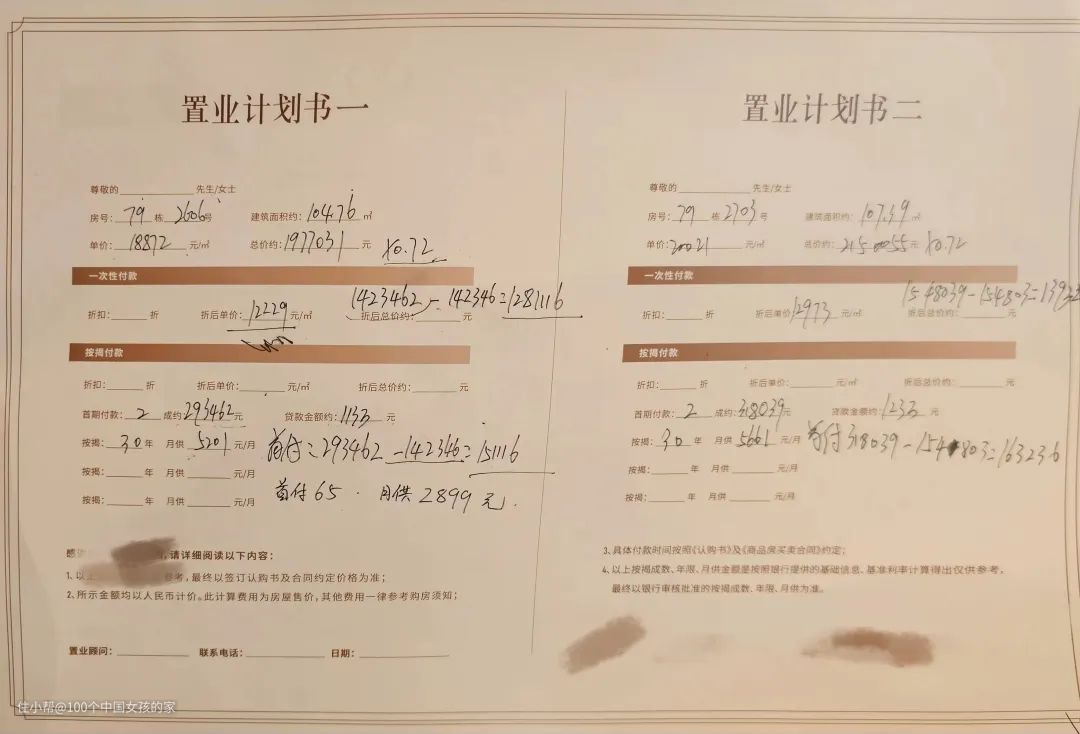 置业计划书一
尊敬的 先生/女士
房号: 79 栋 2606号 建筑面积约: 104.76 ㎡
单价: 18872 元/㎡ 总价约: 1977031 元 X0.72
一次性付款
1423462 - 142346 = 1281116
折扣: 折 折后单价: 12229 元/㎡ 折后总价约: 元
按揭付款
折扣: 折 折后单价: 元/㎡ 折后总价约: 元
首期付款: 2 成约 293462元 贷款金额约: 113万 元
按揭: 30 年 月供 5201 元/月 首付: 293462 - 142346 = 151116
按揭: 年 月供 元/月
首付65. 月供2899元.
按揭: 年 月供 元/月
感 请详细阅读以下内容:
1、以 参考,最终以签订认购书及合同约定价格为准;
2、所示金额均以人民币计价。此计算费用为房屋售价,其他费用一律参考购房须知;
置业顾问: 联系电话: 日期:
置业计划书二
尊敬的 先生/女士
房号: 79 栋 2703 号 建筑面积约: 107.39 ㎡
单价: 20021 元/㎡ 总价约: 2150055元 X0.72
一次性付款
1548039 - 154803 =
折扣: 折 折后单价 12973 元/㎡ 折后总价约: 元
按揭付款
折扣: 折 折后单价: 元/㎡ 折后总价约: 元
首期付款: 2 成约: 318039元 贷款金额约: 123万 元
按揭: 30 年 月供 5661 元/月 首付 318039 - 154803 = 163236
按揭: 年 月供 元/月
按揭: 年 月供 元/月
3、具体付款时间按照《认购书》及《商品房买卖合同》约定;
4、以上按揭成数、年限、月供金额是按照银行提供的基础信息、基准利率计算得出仅供参考,
最终以银行审核批准的按揭成数、年限、月供为准。
住小帮@100个中国女孩的家